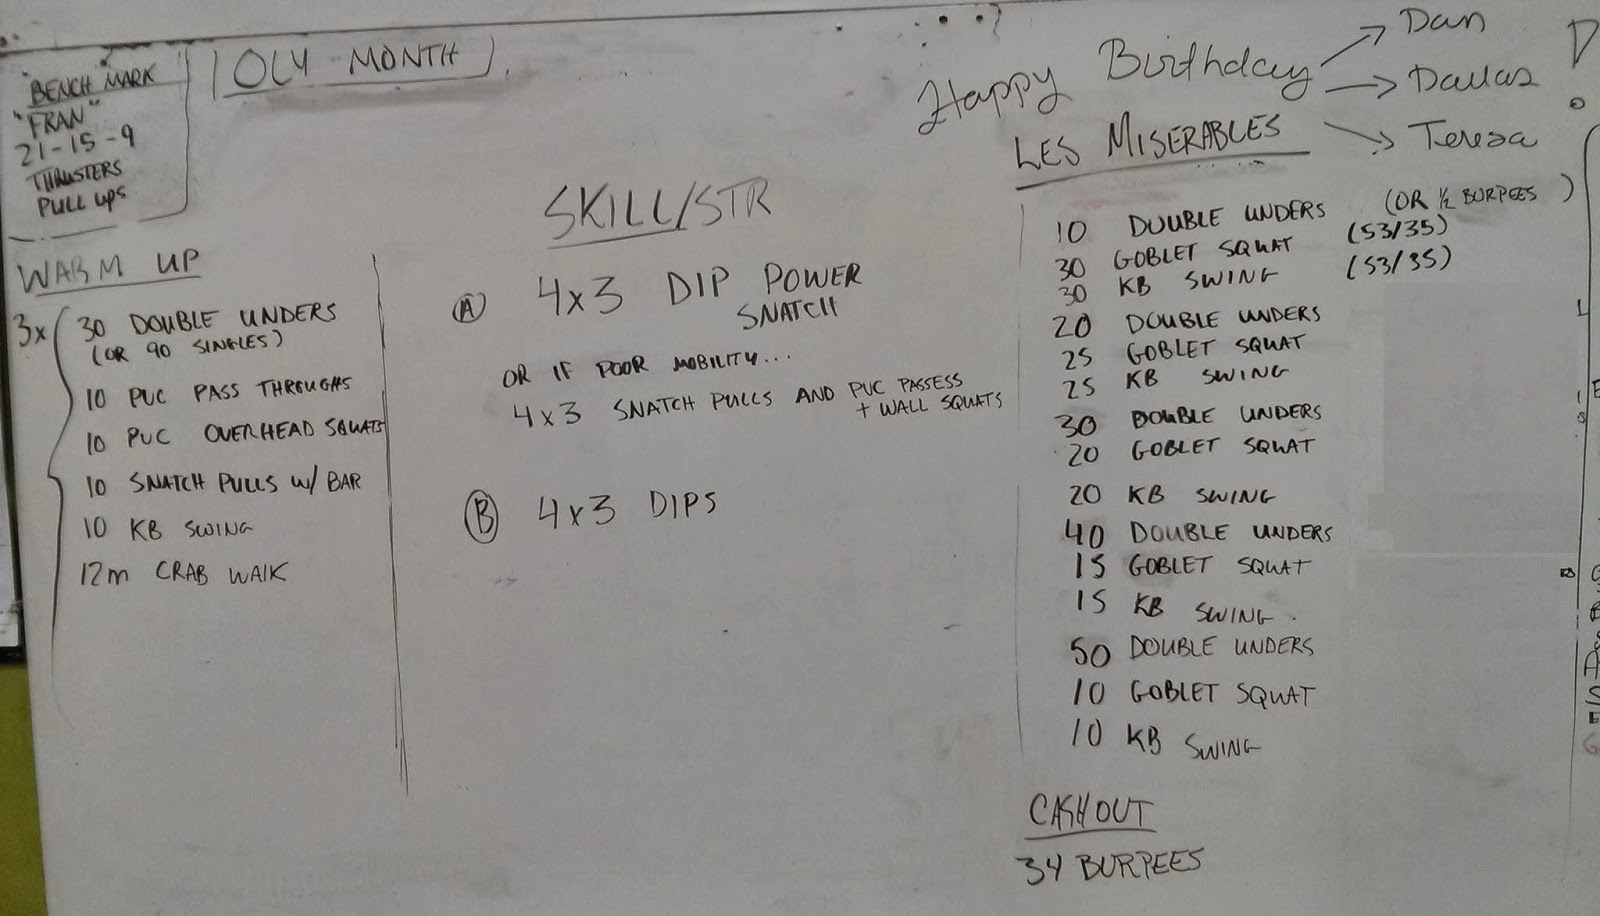 "BENCH MARK
"FRAN"
21-15-9
THRUSTERS
PULL UPS
OLY MONTH
Happy Birthday
Dan
Dallas
Teresa
WARM UP
3x
30 DOUBLE UNDERS
(OR 90 SINGLES)
10 PVC PASS THROUGHS
10 PVC OVERHEAD SQUATS
10 SNATCH PULLS W/ BAR
10 KB SWING
12m CRAB WALK
SKILL/STR
A 4x3 DIP POWER
SNATCH
OR IF POOR MOBILITY...
4x3 SNATCH PULLS AND PVC PASSESS
+ WALL SQUATS
B 4x3 DIPS
LES MISERABLES
10 DOUBLE UNDERS (OR 1/2 BURPEES)
30 GOBLET SQUAT (53/35)
30 KB SWING (53/35)
20 DOUBLE UNDERS
25 GOBLET SQUAT
25 KB SWING
30 DOUBLE UNDERS
20 GOBLET SQUAT
20 KB SWING
40 DOUBLE UNDERS
15 GOBLET SQUAT
15 KB SWING
50 DOUBLE UNDERS
10 GOBLET SQUAT
10 KB SWING
CASHOUT
34 BURPEES